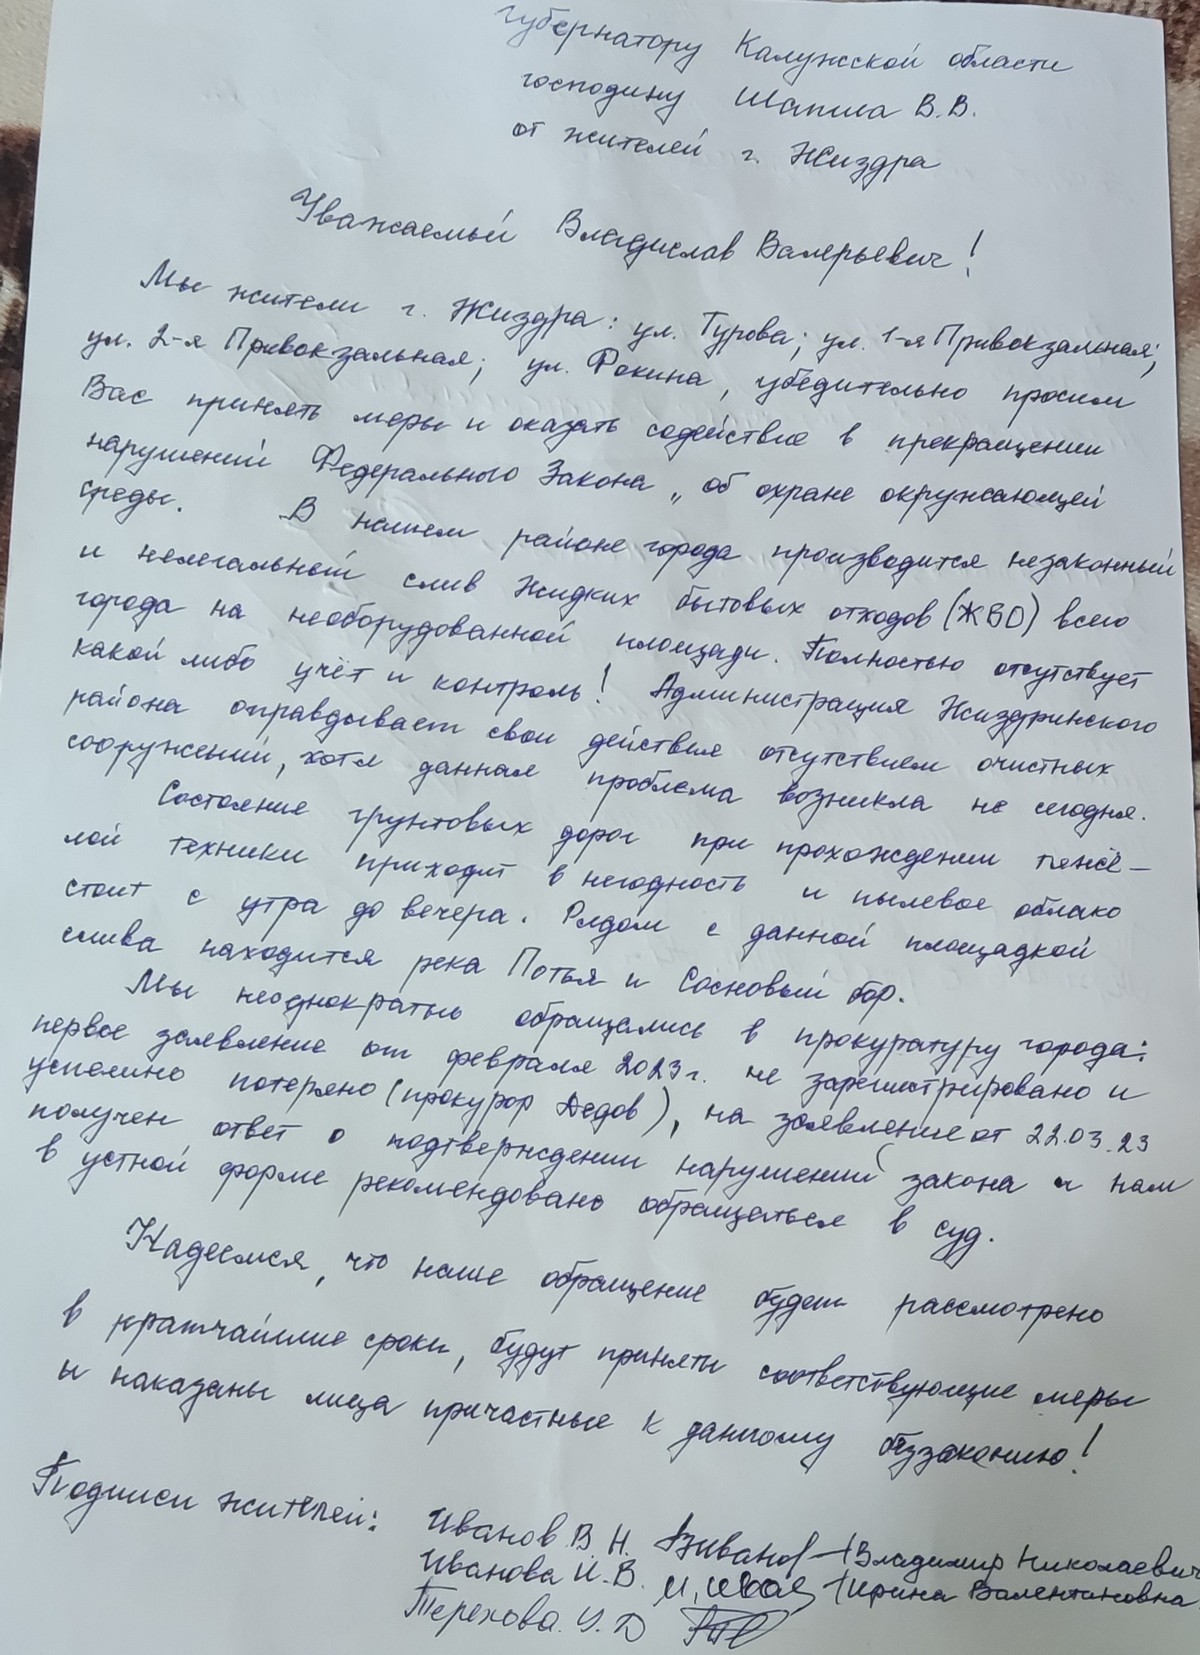 губернатору Калужской области
господину Шапша В.В.
от жителей г. Жиздра
Уважаемый Владислав Валерьевич!
Мы жители г. Жиздра: ул. Турова; ул. 1-я Привокзальная;
ул. 2-я Привокзальная; ул. Фокина, убедительно просим
Вас принять меры и оказать содействие в прекращении
нарушений Федерального Закона „об охране окружающей
среды. В нашем районе города производится незаконный
и нелегальный слив Жидких бытовых отходов (ЖБО) всего
города на необорудованной площади. Полностью отсутствует
какой либо учёт и контроль! Администрация Жиздринского
района оправдывает свои действия отсутствием очистных
сооружений, хотя данная проблема возникла не сегодня.
Состояние грунтовых дорог при прохождении тяжё-
лой техники приходит в негодность и пылевое облако
стоит с утра до вечера. Рядом с данной площадкой
слива находится река Потья и Сосновый бор.
Мы неоднократно обращались в прокуратуру города:
первое заявление от февраля 2023г. не зарегистрировано и
успешно потеряно (прокурор Дедов), на заявление от 22.03.23
получен ответ о подтверждении нарушений закона и нам
в устной форме рекомендовано обращаться в суд.
Надеемся, что наше обращение будет рассмотрено
в кратчайшие сроки, будут приняты соответствующие меры
и наказаны лица причастные к данному беззаконию!
Подписи жителей:
Иванов В. Н. ВИванов (Владимир Николаевич
Иванова И. В. (Ирина Валентиновна
Терехова. У. D